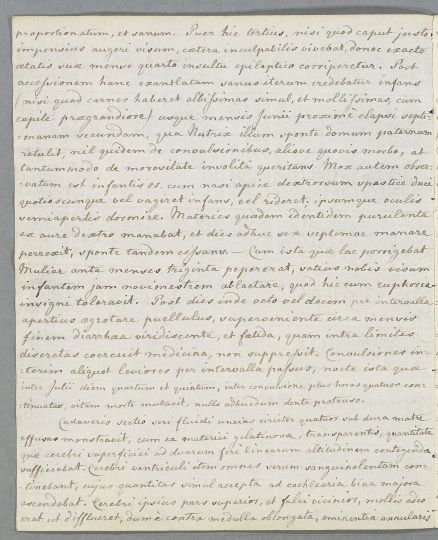 proportionatum, et sanum. Puer hic tertius, nisi quod caput justo
impensius augeri visum, cætera inculpabilis vivebat, donec exacto
ætatis suæ mense quarto insultu epileptico corriperetur. Post
accessionem hanc exantlatam sanus iterum credebatur infans
(nisi quod carnes haberet albissimas simul, et mollissimas, cum
capite prægrandiore) usque mensis Junii proxime elapsi septi-
manam secundam, qua Nutrix illum sponte domum paternum
retulit, nil quidem de convulsionibus, aliove quovis morbo, at
tantummodo de morositate insolita queritans. Mox autem obser-
vatum est infantis os, cum nasi apice dextrorsum spastice duci
quotiescunque vel vagiret infans, vel rideret, ipsumque oculis
semiapertis dormire. Materies quædam identidem purulenta
ex aure dextro manabat, et dies adhuc sex septemve manare
perrexit, sponte tandem cessans. — Cum ista quæ lac porrigebat
Mulier ante menses triginta pepererat, satius nobis visum
infantem jam novimestrem ablactare, quod hic cum euphoria
insigni toleravit. Post dies inde octo vel decem per intervalla
apertius ægrotare puellulus, superveniente circa mensis
finem diarrhæa viridiscente, et fætida, quam intra limites
discretas coercuit medicina, non suppressit. Convulsiones in-
terim aliquot leviores per intervalla passus, nocte ista quæ
inter Julii diem quartum et quintum, inter convulsione plus horas quatuor con-
tinuatas, vitam morte mutavit, nullo adhucdum dente protruso.
Cadaveris sectio seri fluidi uncias circiter quatuor sub dura matre
effusas monstravit, cum ea materiei gelatinosæ, transparentis, quantitate
quæ cerebri superficiei ad duarum fere linearum altitudinem contegenda
sufficiebat. Cerebri ventriculi item omnes serum sanguinolentum con-
tinebant, cujus quantitas simul accepta ad cochlearia bina majora
ascendebat. Cerebri ipsius pars superior, et falci vicinior, mollis adeo
erat ut difflueret, dum e contra medulla oblongata, eminentia annularis